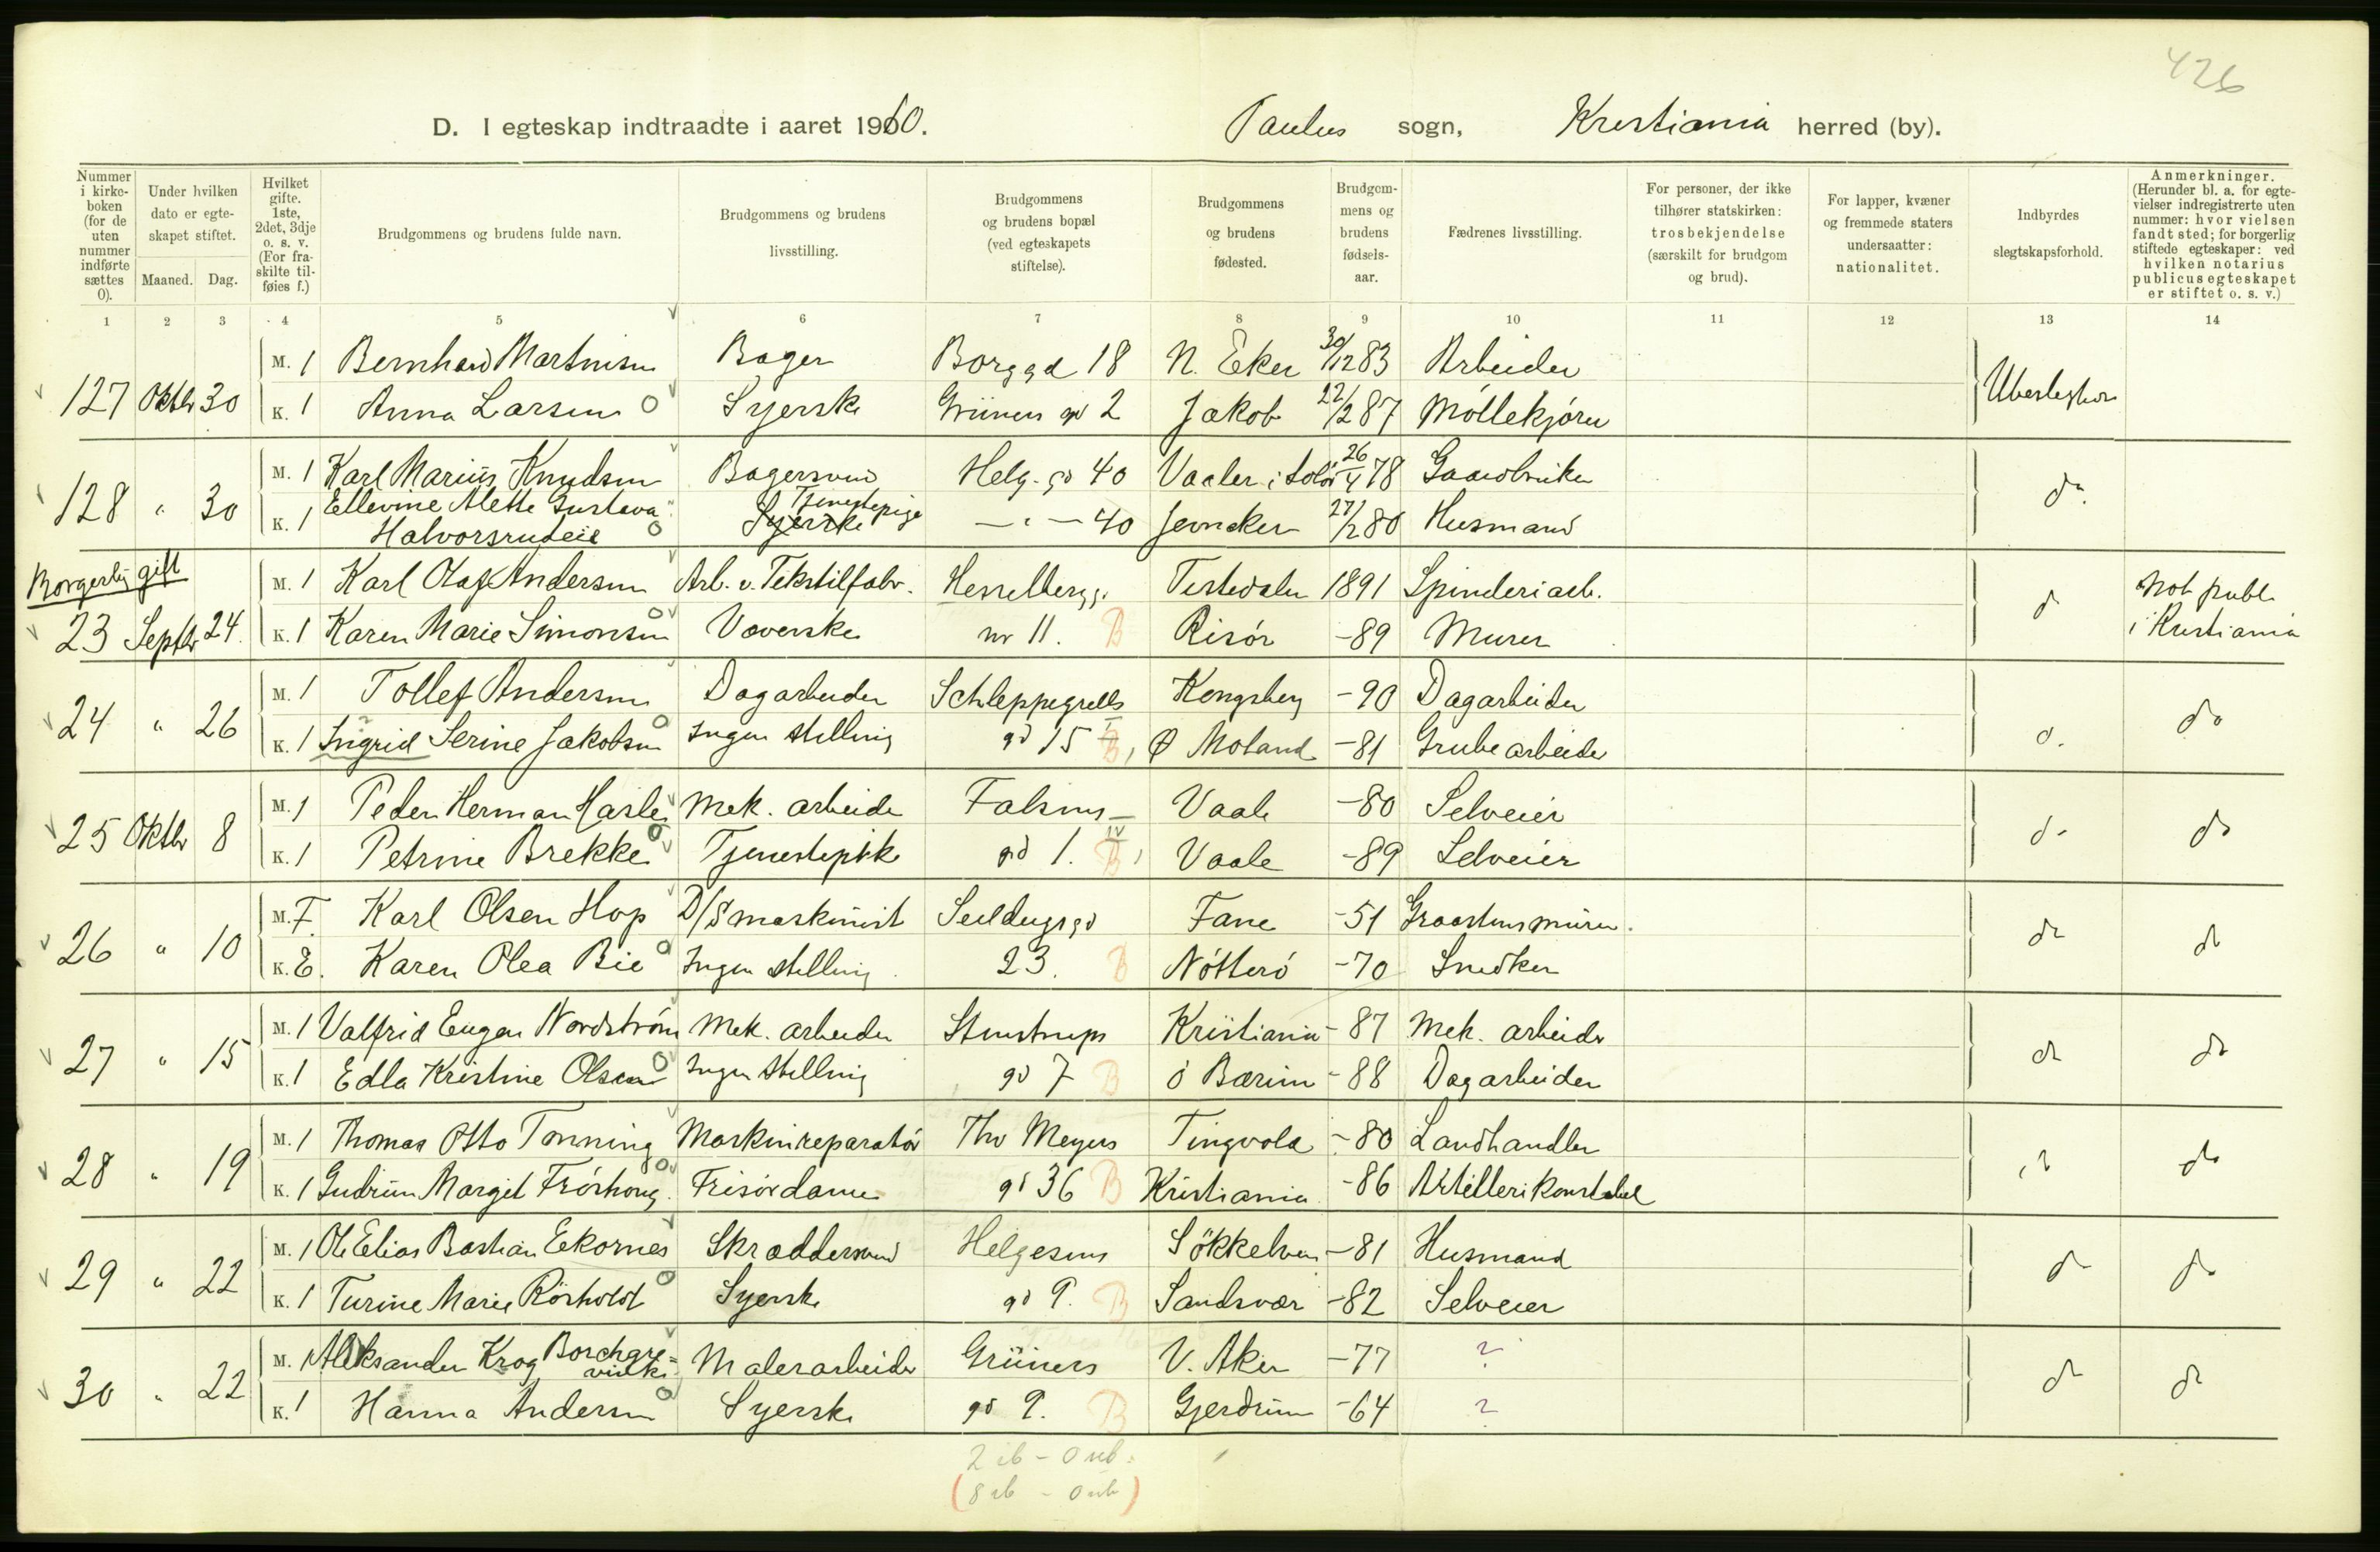 426
D. I egteskap indtraadte i aaret 1910. Paulus sogn, Kristiania herred (by).
Nummer i kirkeboken (for de uten nummer indførte sættes 0). Under hvilken dato er egteskapet stiftet. Maaned. Dag. Hvilket gifte. 1ste, 2det, 3dje o. s. v. (For fraskilte tilføies f.) Brudgommens og brudens fulde navn. Brudgommens og brudens livsstilling. Brudgommens og brudens bopæl (ved egteskapets stiftelse). Brudgommens og brudens fødested. Brudgommens og brudens fødselsaar. Fædrenes livsstilling. For personer, der ikke tilhører statskirken: trosbekjendelse (særskilt for brudgom og brud). For lapper, kvæner og fremmede staters undersaatter: nationalitet. Indbyrdes slegtskapsforhold. Anmerkninger. (Herunder bl. a. for egtevielser indregistrerte uten nummer: hvor vielsen fandt sted; for borgerlig stiftede egteskaper: ved hvilken notarius publicus egteskapet er stiftet o. s. v.)
1 2 3 4 5 6 7 8 9 10 11 12 13 14
M. 1 Bernhard Martinsen Bager Borggd 18 N. Eker 30/12 83 Arbeider
127 Oktbr 30 K. 1 Anna Larsen Syerske Grüners gd 2 Jakob 22/2 87 Möllekjörer Ubeslegtet
M. 1 Karl Marius Knudsen Bagersvend Helg. gd 40 Vaaler i Solör 26/4 78 Gaardbruker
128 " 30 K. 1 Ellevine Alette Gustava Halvorsrudeie Syerske Tjenestepige — " — 40 Jevnaker 27/2 80 Husmand do
Borgerlig gift
M. 1 Karl Olaf Andersen Arb. v. Tekstilfabr. Hesselbergg. Tistedalen 1891 Spinderiarb. Not publ.
23 Septbr 24. K. 1 Karen Marie Simonsen Væverske nr 11. B Risör -89 Murer do i Kristiania
M. 1 Tollef Andersen Dagarbeider Schleppegrells Kongsberg -90 Dagarbeider
24 " 26 K. 1 Ingrid Serine Jakobsen Ingen stilling gd 15 B Ø Moland -81 Grubearbeider do do
M. 1 Peder Herman Hasle Mek. arbeide Falsens Vaale -80 Selveier
25 Oktbr 8 K. 1 Petrine Brekke Tjenestepike gd 1. IV B Vaale -89 Selveier do do
M. F. Karl Olsen Hop D/S maskinist Seildugsgd Fane -51 Graastensmurer.
26 " 10 K. E. Karen Olea Bie Ingen stilling 23. B Nötterö -70 Snedker do do
M. 1 Valfrid Eugen Nordström Mek. arbeider Stenstrups Kristiania -87 Mek. arbeider
27 " 15 K. 1 Edla Kristine Olsen Ingen stilling gd 7 B Ö Bærum -88 Dagarbeider do do
M. 1 Thomas Otto Tønning Maskinreparatör Thv Meyers Tingvold -80 Landhandler
28 " 19 K. 1 Gudrun Margit Fröshoug Frisördame gd 36 B Kristiania -86 Artillerikonstabel do do
M. 1 Ole Elias Bastian Eekornes Skræddersvend Helgesens Sökkelven -81 Husmand
29 " 22 K. 1 Turine Marie Rörholdt Syerske gd 9. B Sandsvær -82 Selveier do do
M. 1 Aleksander Krog Borchgrevink Malerarbeider Grüners V. Aker -77 ?
30 " 22 K. 1 Hanna Andersen Syerske gd 9. B Gjerdrum -64 ? do do
2 ib - 0 ub.
(8 ib - 0 ub)